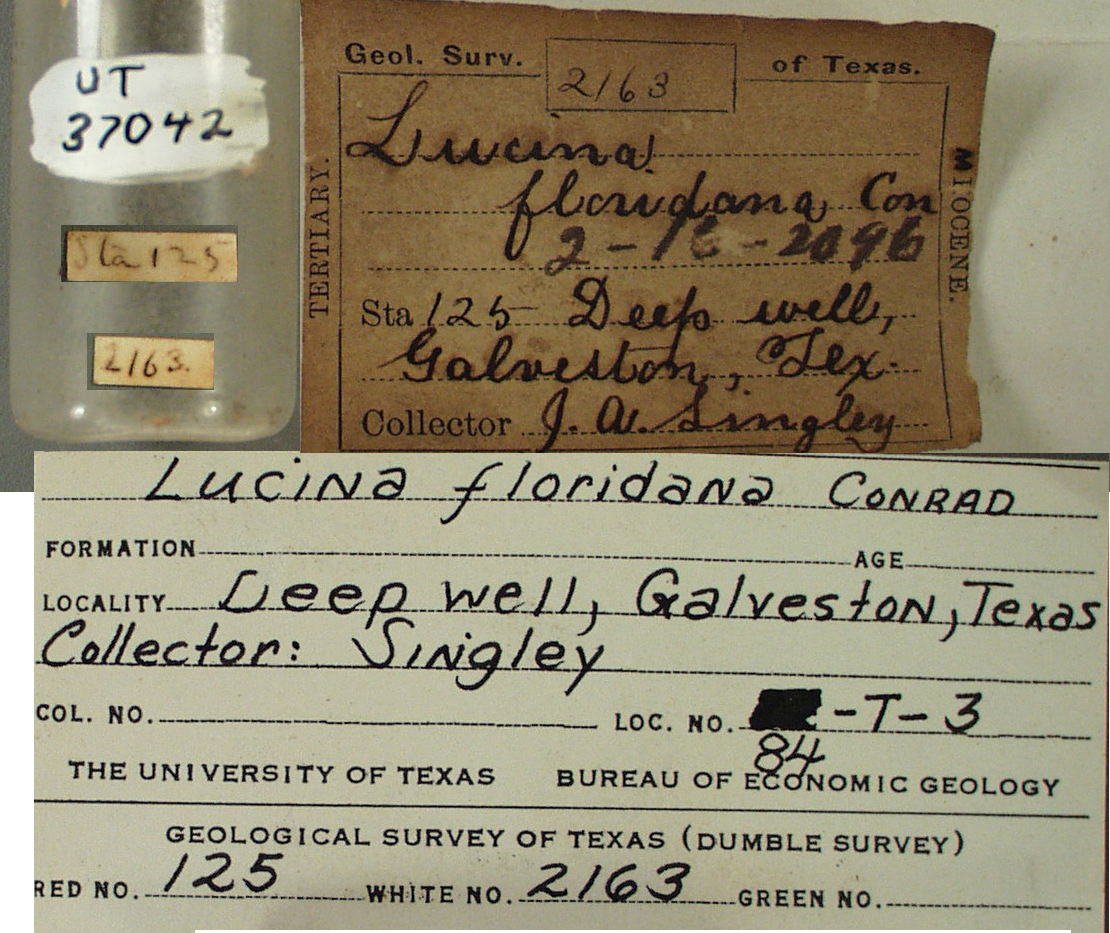 UT
37042
Sta 125
2163.
Geol. Surv. 2163 of Texas.
TERTIARY.
Lucina
floridana, Con
Sta 125 Deep well,
Galveston, Tex.
Collector J. A. Singley
MIOCENE.
Lucina floridana CONRAD
FORMATION AGE
LOCALITY Deep well, Galveston, Texas
Collector: Singley
COL. NO. LOC. NO. -T-3
84
THE UNIVERSITY OF TEXAS BUREAU OF ECONOMIC GEOLOGY
GEOLOGICAL SURVEY OF TEXAS (DUMBLE SURVEY)
RED NO. 125 WHITE NO. 2163 GREEN NO.